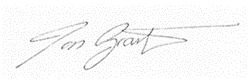 Jon Grant